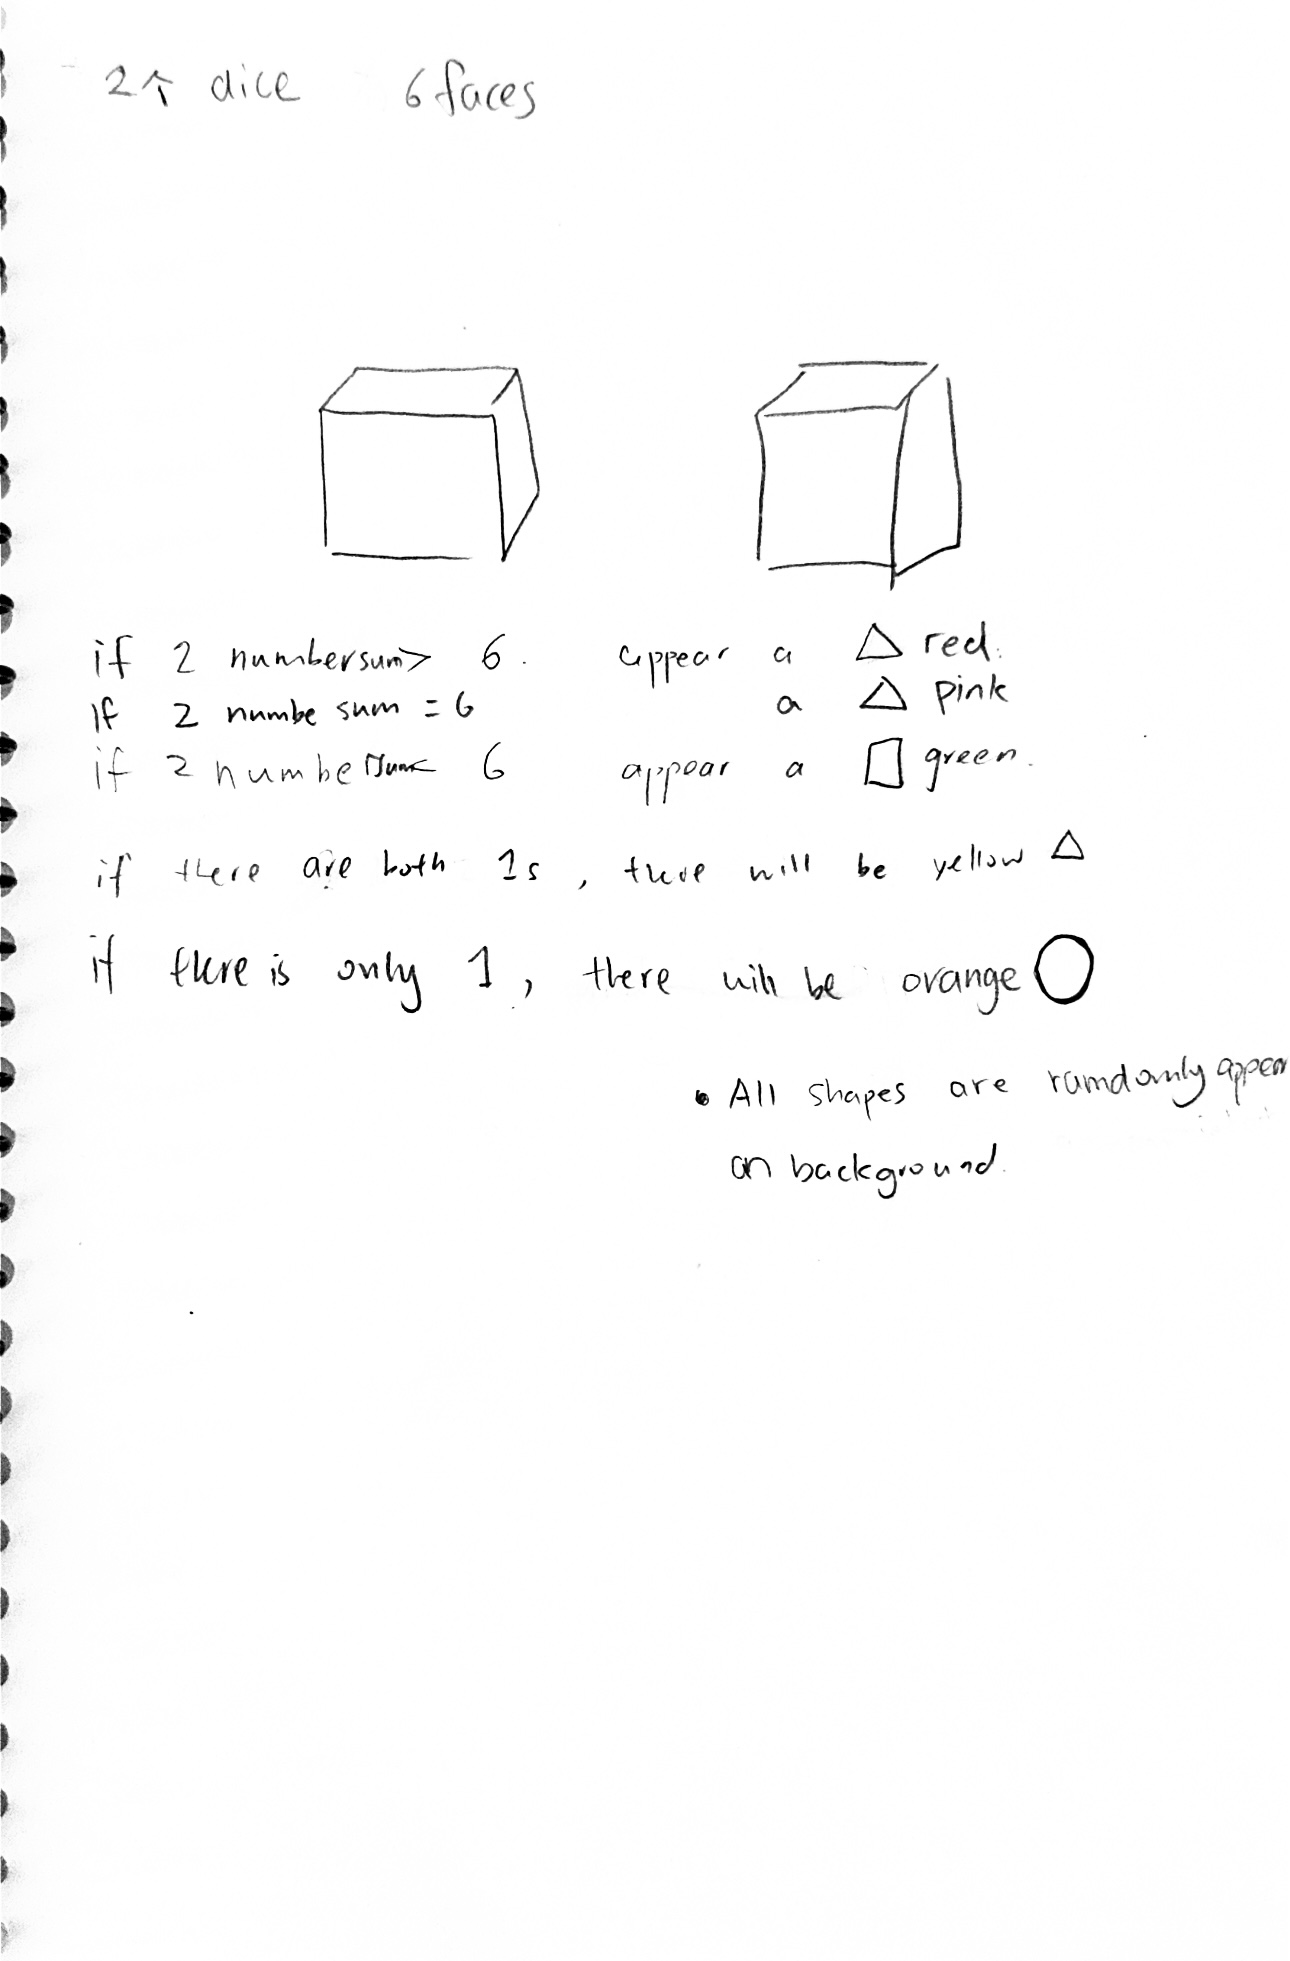 2个 dice 6 faces
if 2 number sum > 6. appear a △ red.
If 2 numbe sum = 6 a △ pink
if 2 number sum < 6 appear a □ green.
if there are both 1s, there will be yellow △
if there is only 1, there will be orange ○
• All shapes are ramdomly appear
on background.